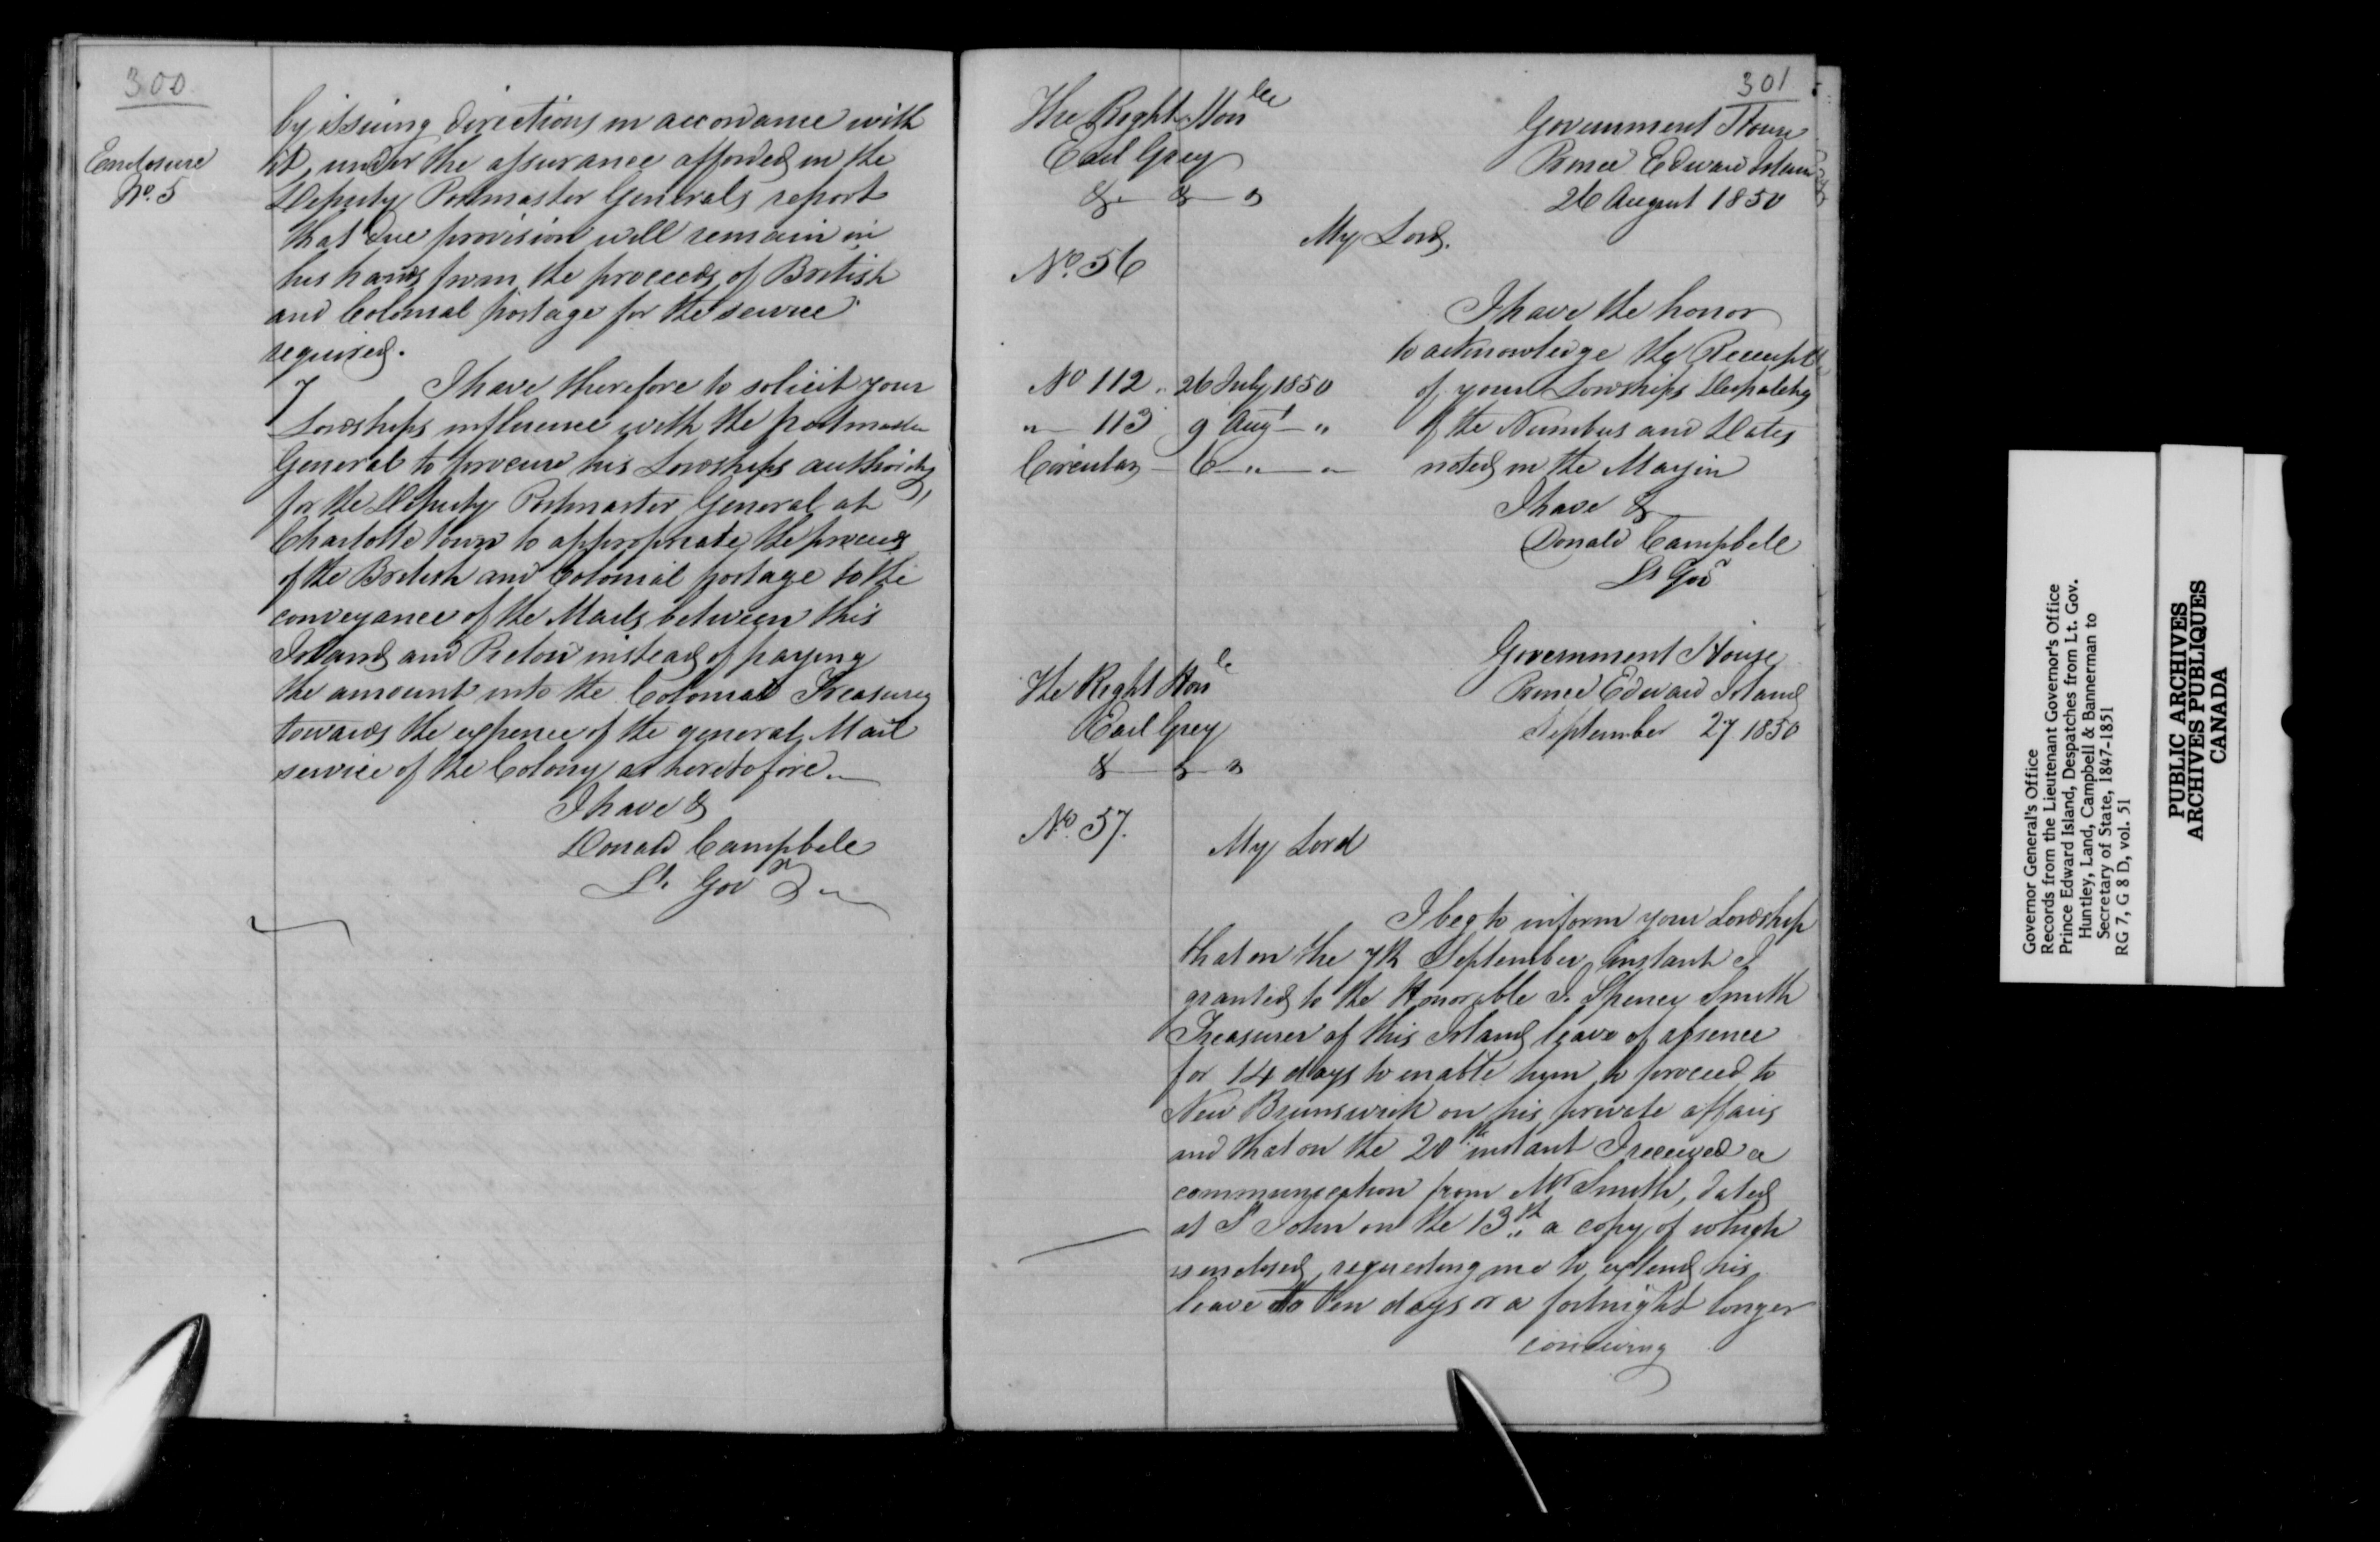 300
Enclosure
No. 5
by issuing directions in accordance with
it, under the assurance afforded in the
Deputy Postmaster Generals report
that due provision will remain in
his hands from the proceeds of British
and Colonial postage for the service
required.
7 I have therefore to solicit your
Lordships influence with the postmaster
General to procure his Lordships authority
for the Deputy Postmaster General at
Charlotte Town to appropriate the proceeds
of the British and Colonial postage to the
conveyance of the Mails between this
Island and Pictou instead of paying
the amount into the Colonial Treasury
towards the expence of the general Mail
service of the Colony as heretofore.
I have &
Donald Campbell
Lt. Govr
301
The Right Honble
Earl Grey
& & &
Government House
Prince Edward Island
26 August 1850
My Lord.
No. 56
I have the honor
to acknowledge the Receipt
No 112 " 26 July 1850 of your Lordships Despatches
" 113 9 Augt " of the Numbers and Dates
Circular 6 " " noted in the Margin
I have &
Donald Campbell
Lt Govr
Government House
The Right Honle
Prince Edward Island
Earl Grey
September 27 1850
& & &
No. 57.
My Lord
I beg to inform your Lordship
that on the 7th September instant I
granted to the Honorable J. Spencer Smith
Treasurer of this Island leave of absence
for 14 days to enable him to proceed to
New Brunswick on his private affairs
and that on the 20th instant I received a
communication from Mr Smith, dated
at St John on the 13th a copy of which
is enclosed, requesting me to extend his
leave to ten days or a fortnight longer
conceiving
Governor General's Office
Records from the Lieutenant Governor's Office
Prince Edward Island, Despatches from Lt. Gov.
Huntley, Land, Campbell & Bannerman to
Secretary of State, 1847-1851
RG 7, G 8 D, vol. 51
PUBLIC ARCHIVES
ARCHIVES PUBLIQUES
CANADA